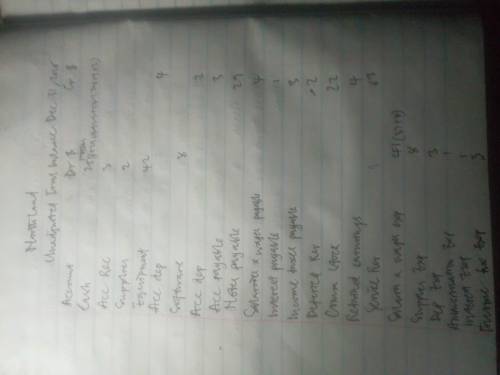 Northland
Unadjusted Trial Balance Dec. 31
Account Dr $ Cr $
Cash
Acc Rec 3
Supplies 2
Equipment 42
Acc dep 4
Software 8
Acc dep 2
Acc payable 3
Notes payable 29
Salaries & wages payable 4
Interest payable 1
Income taxes payable 3
Deferred Rev 2
Comm Stock 22
Retained earnings 4
Service Rev
Salaries & wages exp
Supplies Exp 8
Dep Exp 3
Amortization Exp 1
Interest Exp 1
Income tax Exp 3